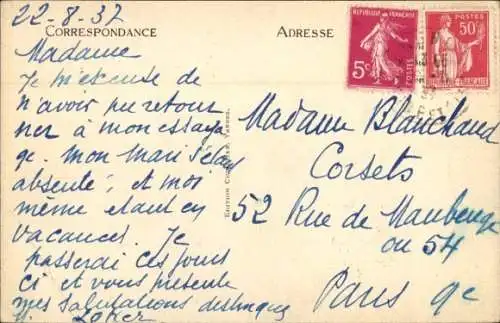 22-8-37
CORRESPONDANCE
ADRESSE
Madame
Je m'excuse de
n'avoir pu retour
ner à mon essaya
ge. mon mari s'étant
absenté; et moi
même étant en
vacances. Je
passerai ces jours
ci et vous présente
mes salutations distinguées
Madame Blanchaud
Corsets
52 Rue de Maubeuge
ou 54
Paris 9e
REPUBLIQUE FRANÇAISE
5c
POSTES
POSTES
50c